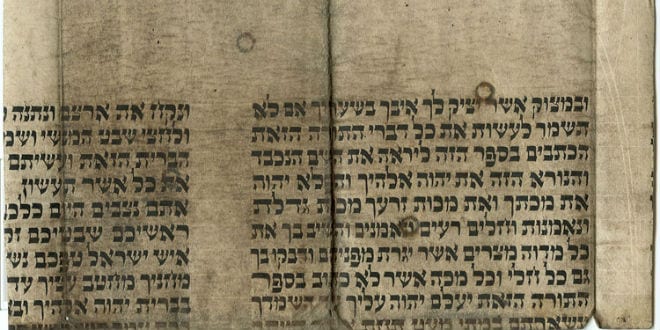 ובמצוק אשר יציק לך איבך בשעריך אם לא
תשמר לעשות את כל דברי התורה הזאת
הכתבים בספר הזה ליראה את השם הנכבד
והנורא הזה את יהוה אלהיך והפלא יהוה
את מכתך ואת מכות זרעך מכות גדלת
ונאמנות וחלים רעים ונאמנים והשיב בך את
כל מדוה מצרים אשר יגרת מפניהם ודבקו בך
גם כל חלי וכל מכה אשר לא כתוב בספר
התורה הזאת יעלם יהוה עליך עד השמדך
ונשארתם במתי מעט תחת אשר
ונקח את ארצם ונתנה
ולחצי שבט המנשי
הברית הזאת ועשיתם
את כל אשר תעשון
אתם נצבים היום
ראשיכם שבטיכם
איש ישראל טפכם
מחניך מחטב עציך עד
בברית יהוה אלהיך